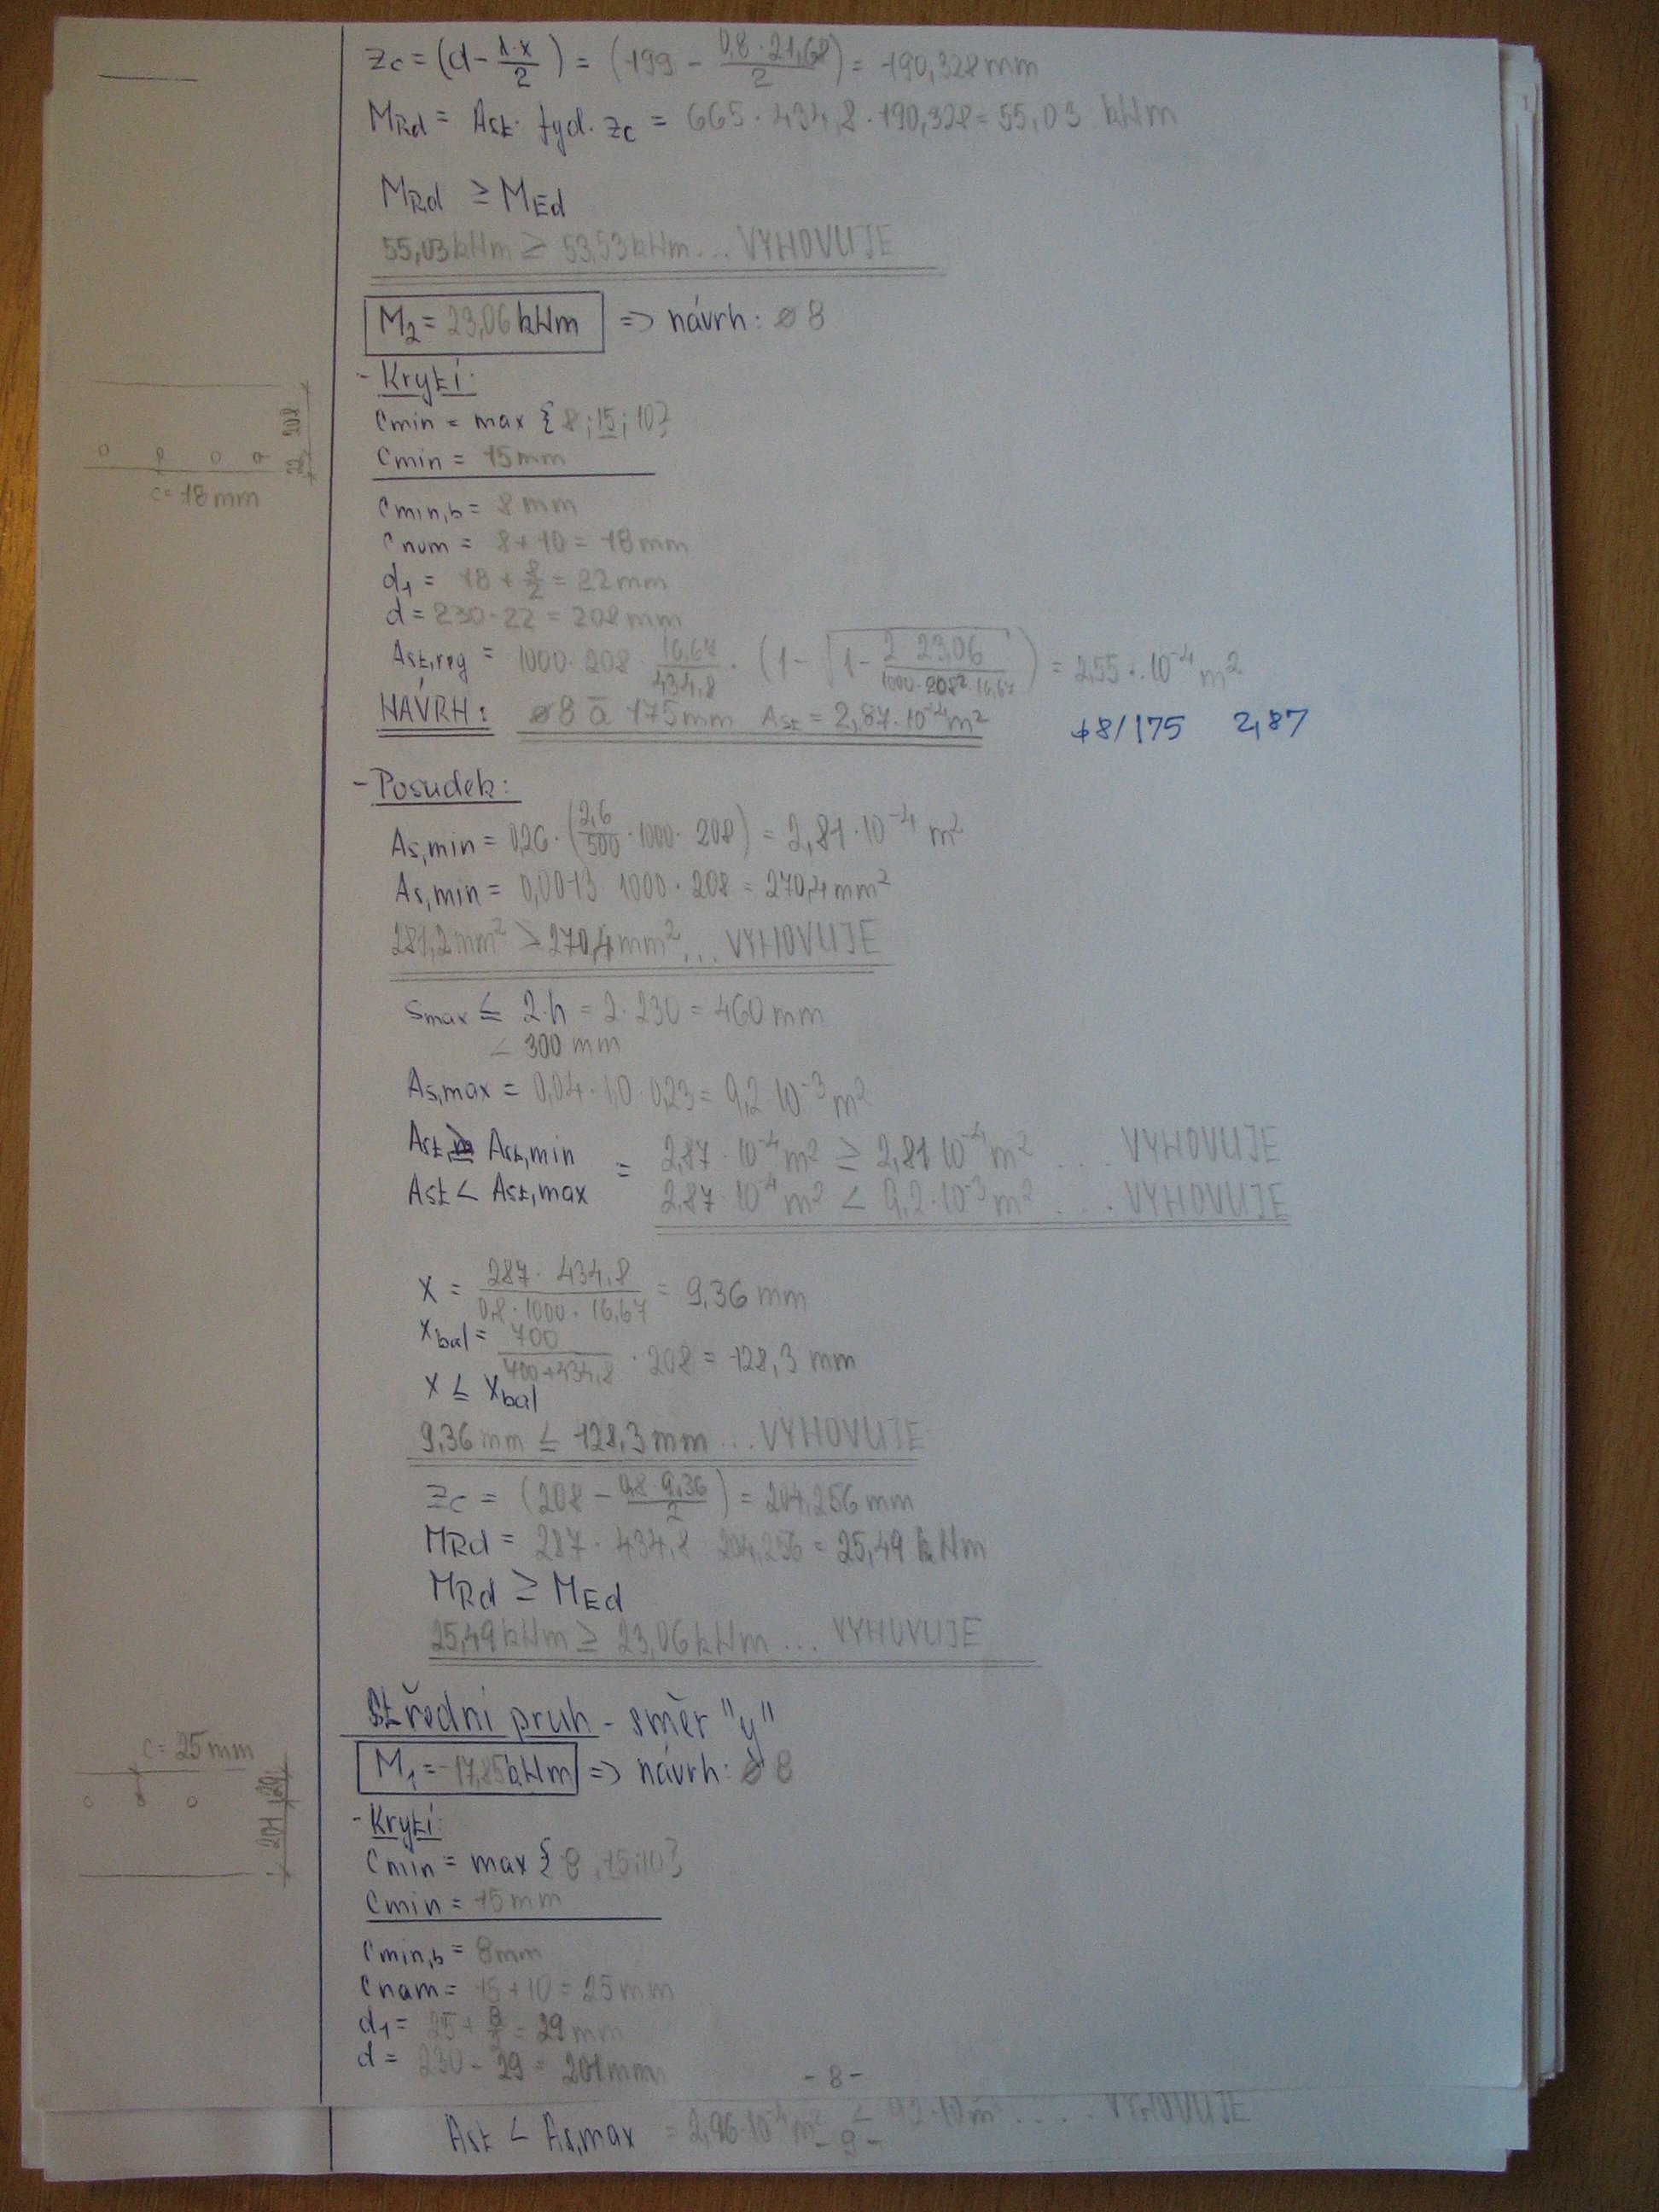 zc = (d - λ·x/2) = (199 - 0,8·21,68/2) = 190,328 mm
MRd = Ast· fyd· zc = 665 · 434,8 · 190,328 = 55,03 kNm
MRd ≥ MEd
55,03 kNm ≥ 53,53 kNm ... VYHOVUJE
M2 = 23,06 kNm => návrh: ø 8
- Krytí:
cmin = max {8; 15; 10}
cmin = 15mm
208
22
c = 18 mm
cmin,b = 8 mm
cnom = 8 + 10 = 18 mm
d1 = 18 + 8/2 = 22 mm
d = 230 - 22 = 208 mm
Ast,req = 1000 · 208 · 16,67/434,8 · (1 - √(1 - 2 23,06/1000·208²·16,67)) = 2,55 · 10⁻⁴ m²
NÁVRH: ø8 ā 175mm Ast = 2,87·10⁻⁴ m²
ø8/175 2,87
- Posudek:
As,min = 0,26 · (2,6/500 · 1000 · 208) = 2,81 · 10⁻⁴ m²
As,min = 0,0013 1000 · 208 = 270,4 mm²
281,2 mm² ≥ 270,4 mm² ... VYHOVUJE
smax ≤ 2·h = 2 · 230 = 460 mm
< 300 mm
As,max = 0,04 · 1,0 · 0,23 = 9,2 10⁻³ m²
Ast ≥ Ast,min = 2,87 · 10⁻⁴ m² ≥ 2,81 10⁻⁴ m² ... VYHOVUJE
Ast < Ast,max 2,87 10⁻⁴ m² < 9,2 · 10⁻³ m² ... VYHOVUJE
x = 287 · 434,8/0,8 · 1000 · 16,67 = 9,36 mm
xbal = 700/700+434,8 · 208 = 128,3 mm
x ≤ xbal
9,36 mm ≤ 128,3 mm ... VYHOVUJE
zc = (208 - 0,8 9,36/2) = 204,256 mm
MRd = 287 · 434,8 204,256 = 25,49 kNm
MRd ≥ MEd
25,49 kNm ≥ 23,06 kNm ... VYHOVUJE
Střední pruh - směr "y"
M1 = -17,85 kNm => návrh: ø 8
c = 25 mm
29
201
- Krytí:
cmin = max {8; 15; 10}
cmin = 15 mm
cmin,b = 8mm
cnom = 15 + 10 = 25 mm
d1 = 25 + 8/2 = 29 mm
d = 230 - 29 = 201 mm
- 8 -
Ast < As,max = 2,96·10⁻⁴ m² < 9,2·10 m ... VYHOVUJE
- 9 -